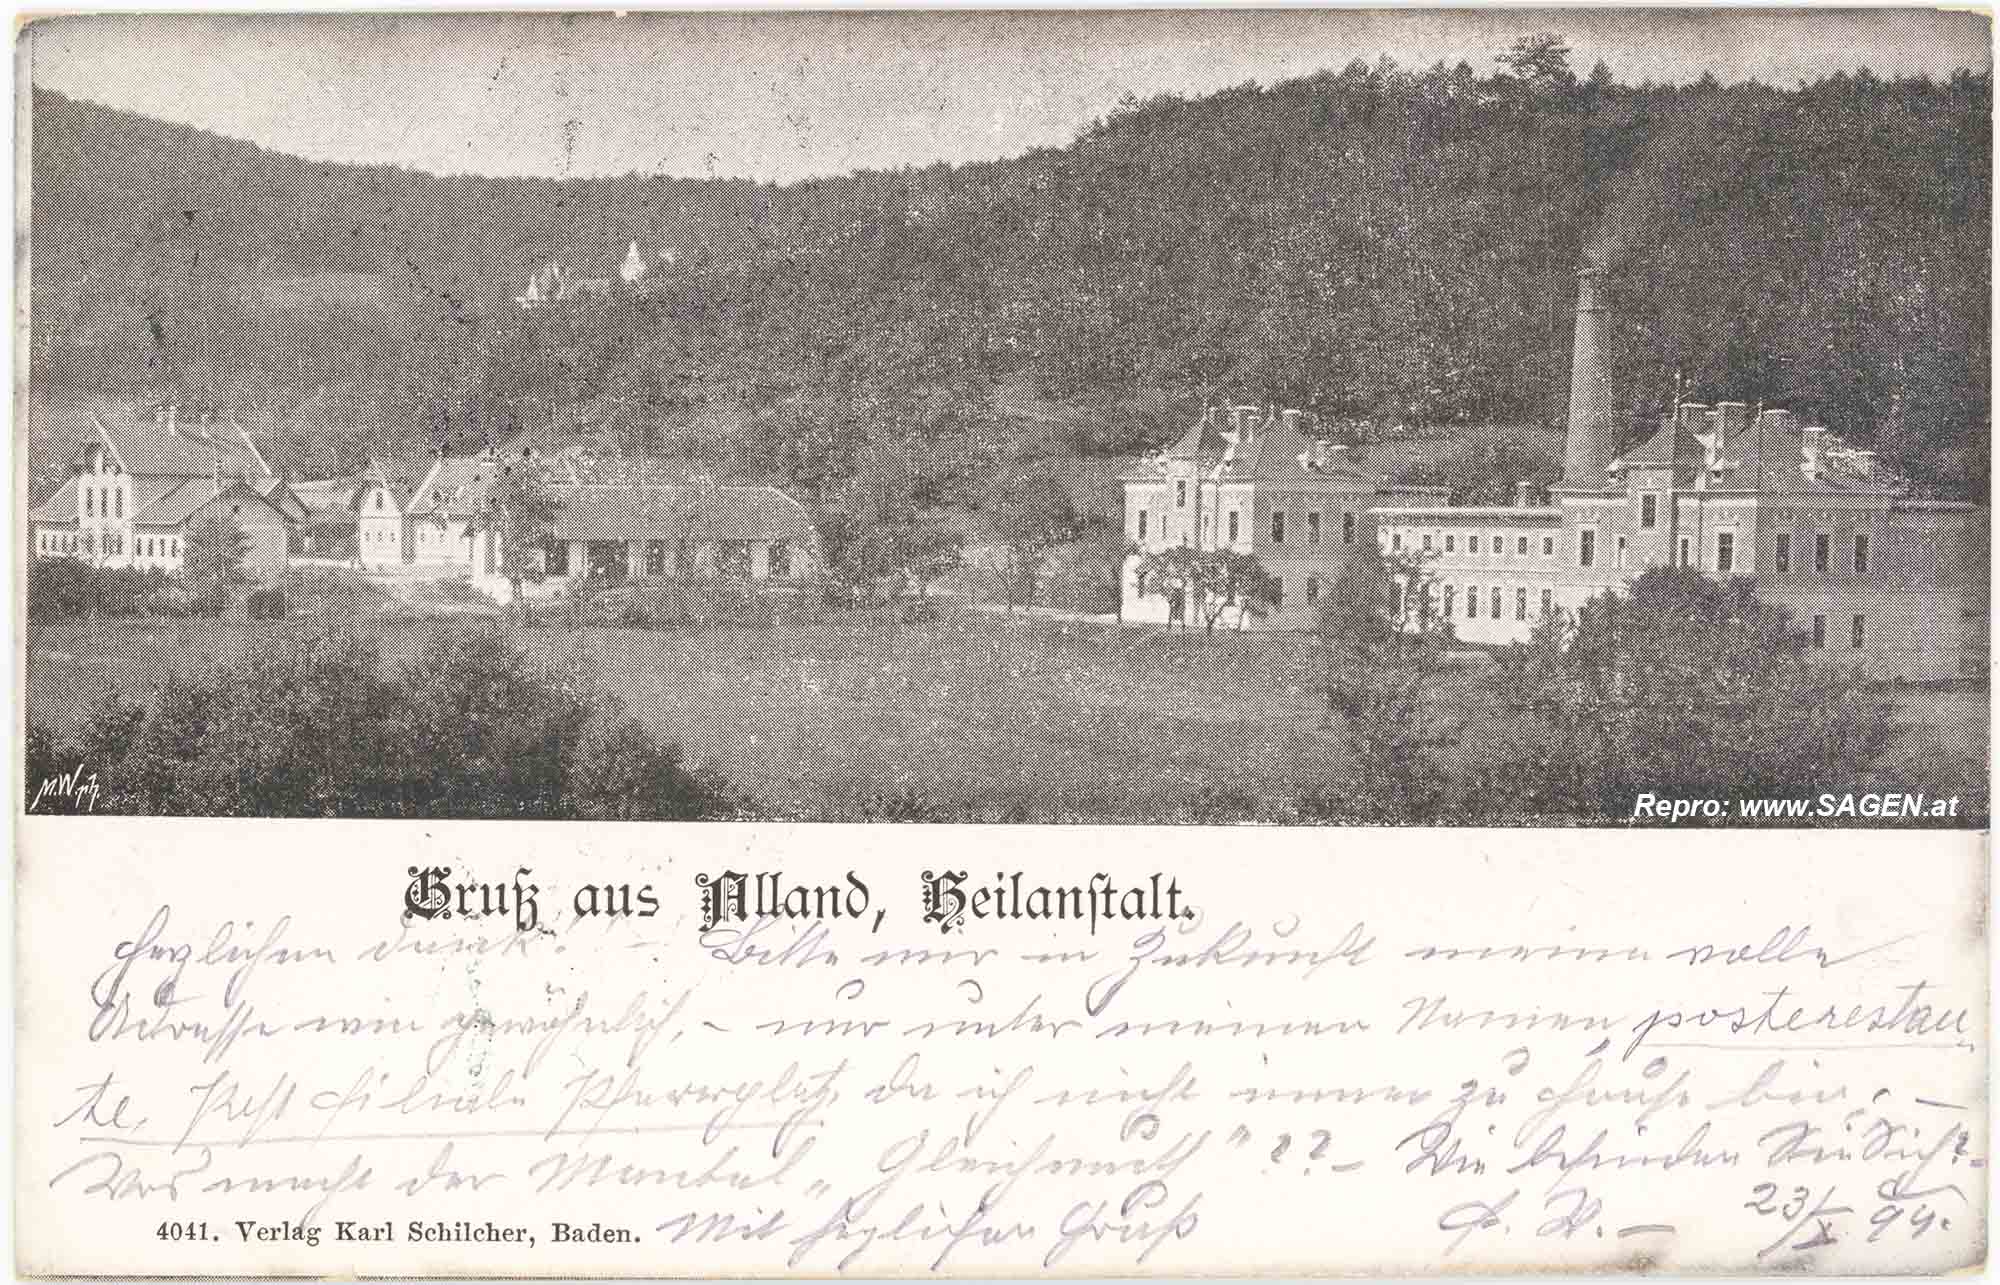 M.W.ph.
Repro: www.SAGEN.at
Gruß aus Alland, Heilanstalt.
Herzlichen Dank! – Bitte mir in Zukunft meine volle
Adresse wie gewöhnlich, – nur unter meinem Namen, posterestau
te, Post Filiale Pfarrplatz, da ich nicht immer zu Hause bin. –
Was macht der Mantel „Gleichmuth" ?? – Wie befinden Sie Sich? –
4041. Verlag Karl Schilcher, Baden.
Mit herzlichem Gruß
23/X. 99.